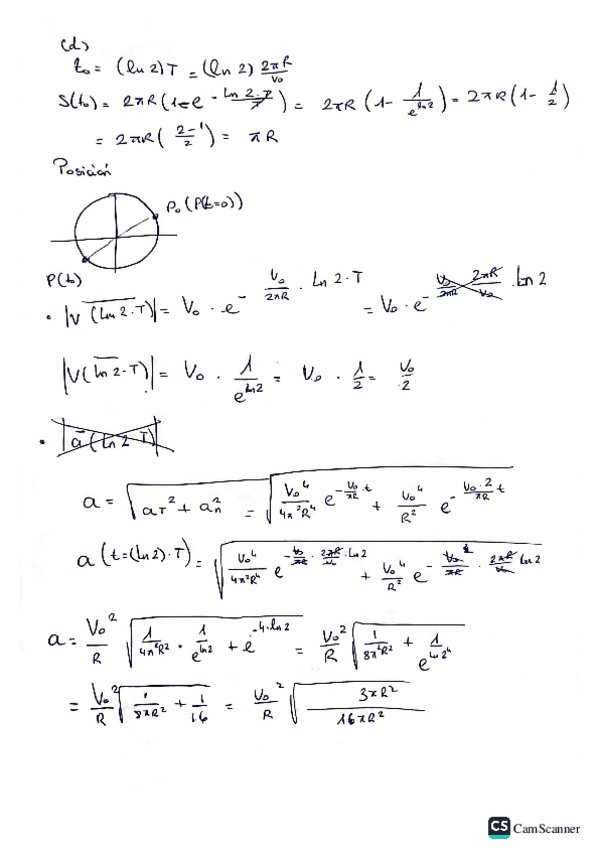 (d)
t₀ = (ln 2) T = (ln 2) 2πR/V₀
S(t₀) = 2πR (1 - e^(-ln 2·T/T)) = 2πR (1 - 1/e^(ln 2)) = 2πR (1 - 1/2)
= 2πR ((2-1)/2) = πR
Posición
P₀ (P(t=0))
P(t)
• |V (ln 2·T)| = V₀ · e^(-V₀/2πR · ln 2·T) = V₀ · e^(-V₀/2πR · 2πR/V₀ · ln 2)
|V(ln 2·T)| = V₀ · 1/e^(ln 2) = V₀ · 1/2 = V₀/2
• |a (ln 2 T)|
a = √(a_T² + a_n²) = √(V₀⁴/4π²R⁴ e^(-V₀/πR · t) + V₀⁴/R² e^(-V₀·2/πR t))
a (t=(ln 2)·T) = √(V₀⁴/4π²R⁴ e^(-V₀/πR · 2πR/V₀ · ln 2) + V₀⁴/R² e^(-V₀2/πR · 2πR/V₀ ln 2))
a = V₀²/R √(1/4π²R² · 1/e^(ln 2) + e^(-4·ln 2)) = V₀²/R √(1/8π²R² + 1/e^(ln 2⁴))
= V₀²/R √(1/8πR² + 1/16) = V₀²/R √(3πR²/16πR²)
CS CamScanner